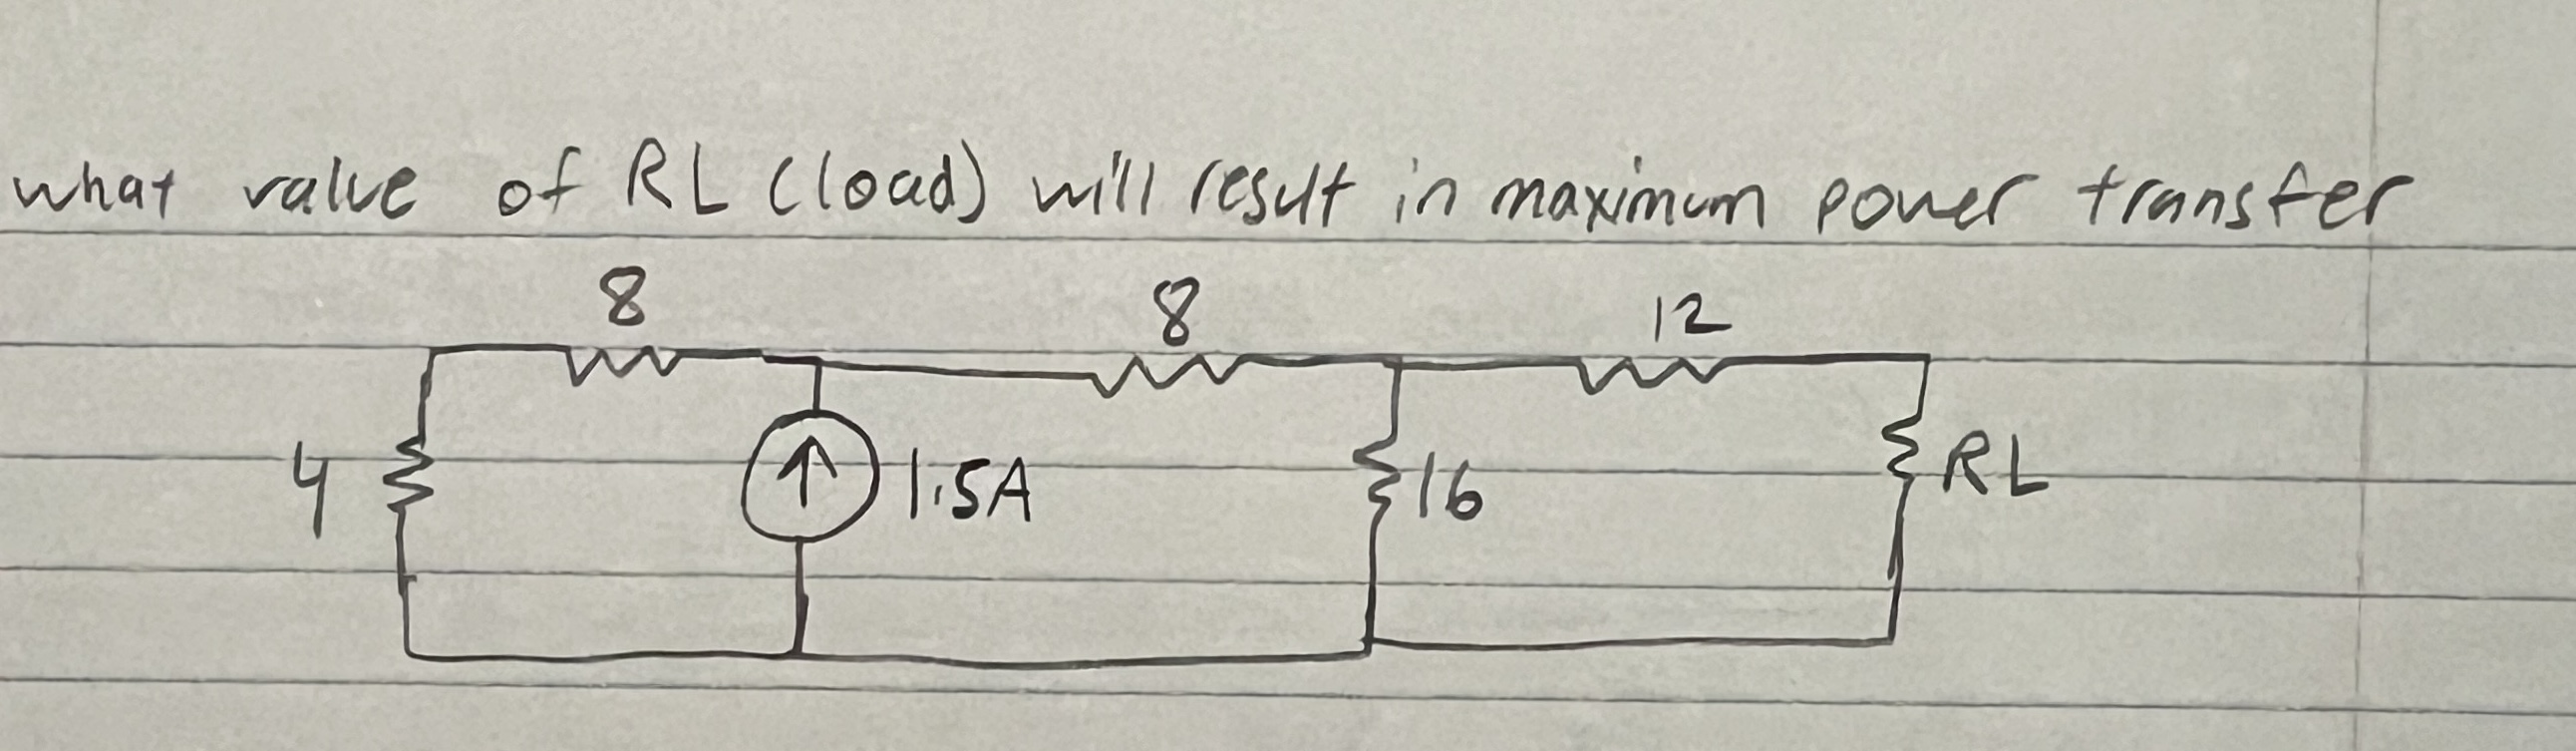 what value of RL (load) will result in maximum power transfer
8 8 12
4 1.5A 16 RL